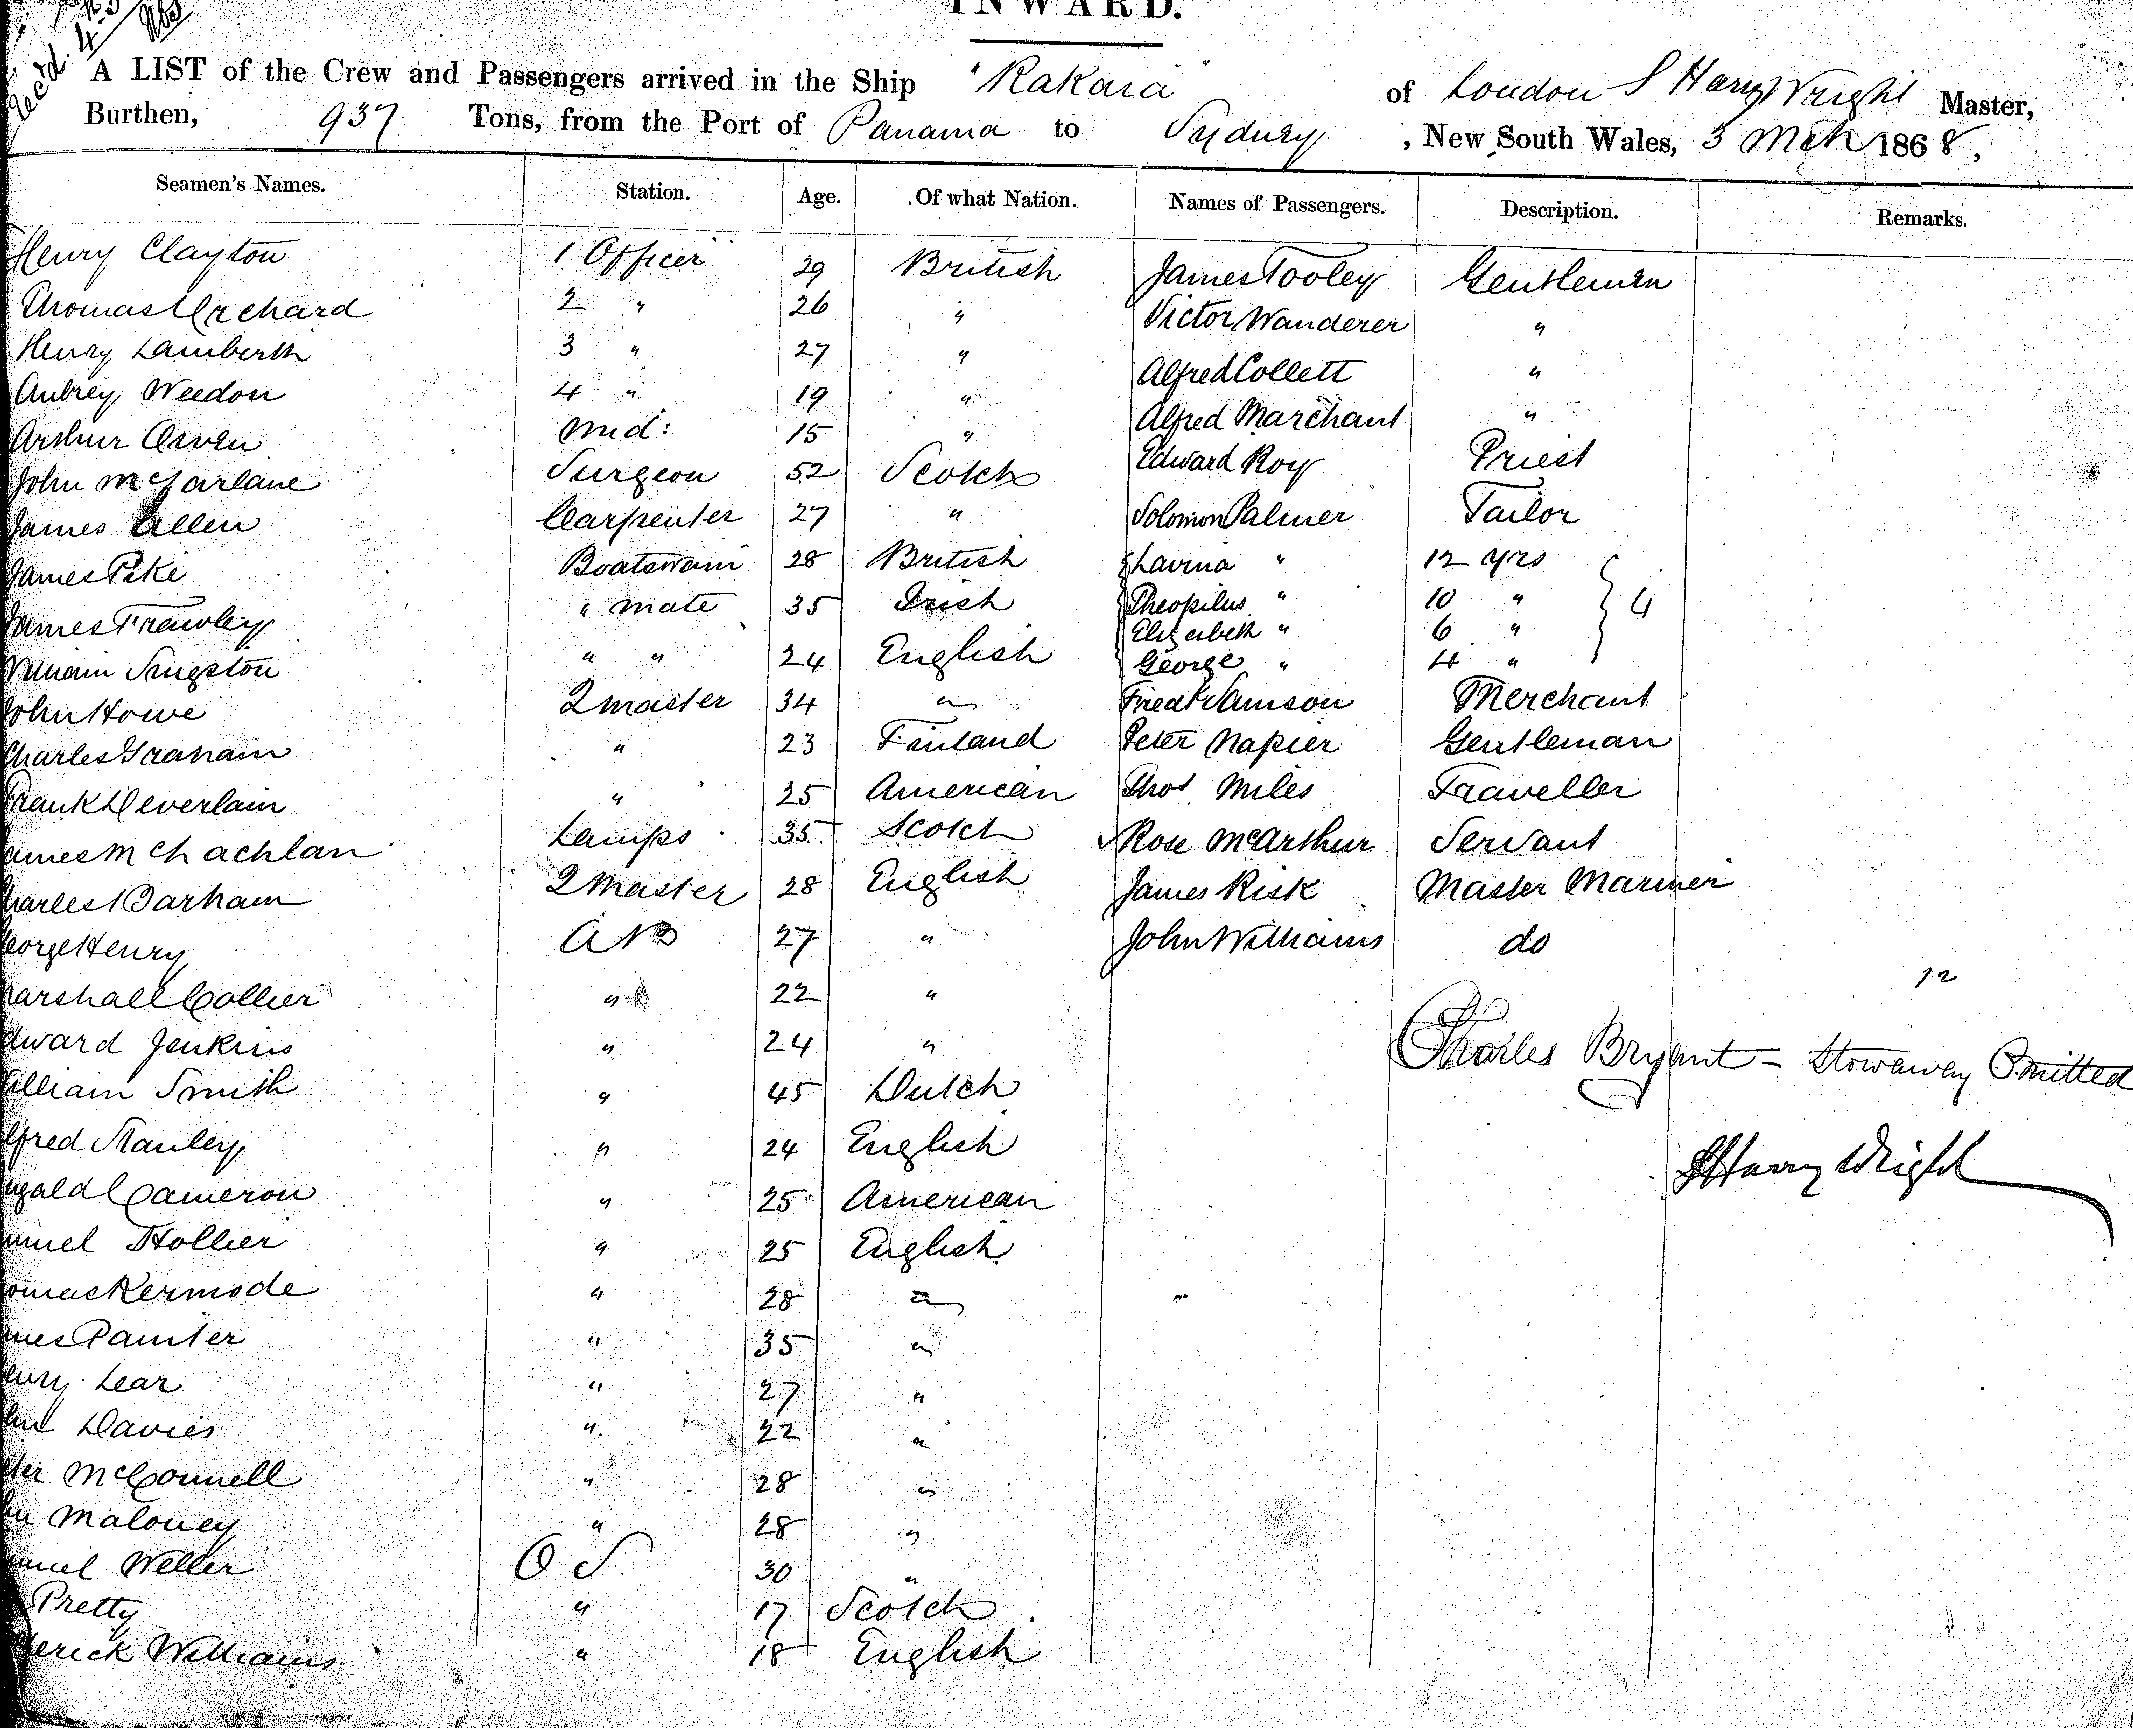 INWARD.
Recd. 4
A LIST of the Crew and Passengers arrived in the Ship "Kakaia" of London S Harry Wright Master,
Burthen, 937 Tons, from the Port of Panama to Sydney, New South Wales, 3 Mch 1868.
Seamen's Names. Station. Age. Of what Nation. Names of Passengers. Description. Remarks.
Henry Clayton 1 Officer 29 British James Tooley Gentleman
Thomas Orchard 2 " 26 " Victor Wanderer "
Henry Lamberth 3 " 27 " Alfred Collett "
Aubrey Weedon 4 " 19 " Alfred Marchant "
Arthur Owen Mid: 15 " Edward Roy Priest
John McFarlane Surgeon 52 Scotch Solomon Palmer Tailor
James Allen Carpenter 27 " Lavina " 12 yrs
James Pike Boatswain 28 British Theopilus " 10 " } 4
James Frawley " mate 35 Irish Elizabeth " 6 "
William Singston " " 24 English George " 4 "
John Howe Q master 34 " Fredk Samson Merchant
Charles Graham " 23 Finland Peter Napier Gentleman
Frank Deverlain " 25 American Thos Miles Traveller
James McLachlan Lamps 35 Scotch Rose McArthur Servant
Charles Barham Q Master 28 English James Risk Master Mariner
George Henry AB 27 " John Williams do
12
Marshall Collier " 22 "
Edward Jenkins " 24 " Charles Bryant - Stowaway Omitted
William Smith " 45 Dutch
Alfred Stanley " 24 English S Harry Wright
ugald Cameron " 25 American
amuel Hollier " 25 English
omas Kermode " 28 "
ames Painter " 35 "
enry Lear " 27 "
Davies " 22 "
McConnell " 28 "
Maloney " 28 "
amuel Weller O S 30 "
Pretty " 17 Scotch
derick Williams " 18 English